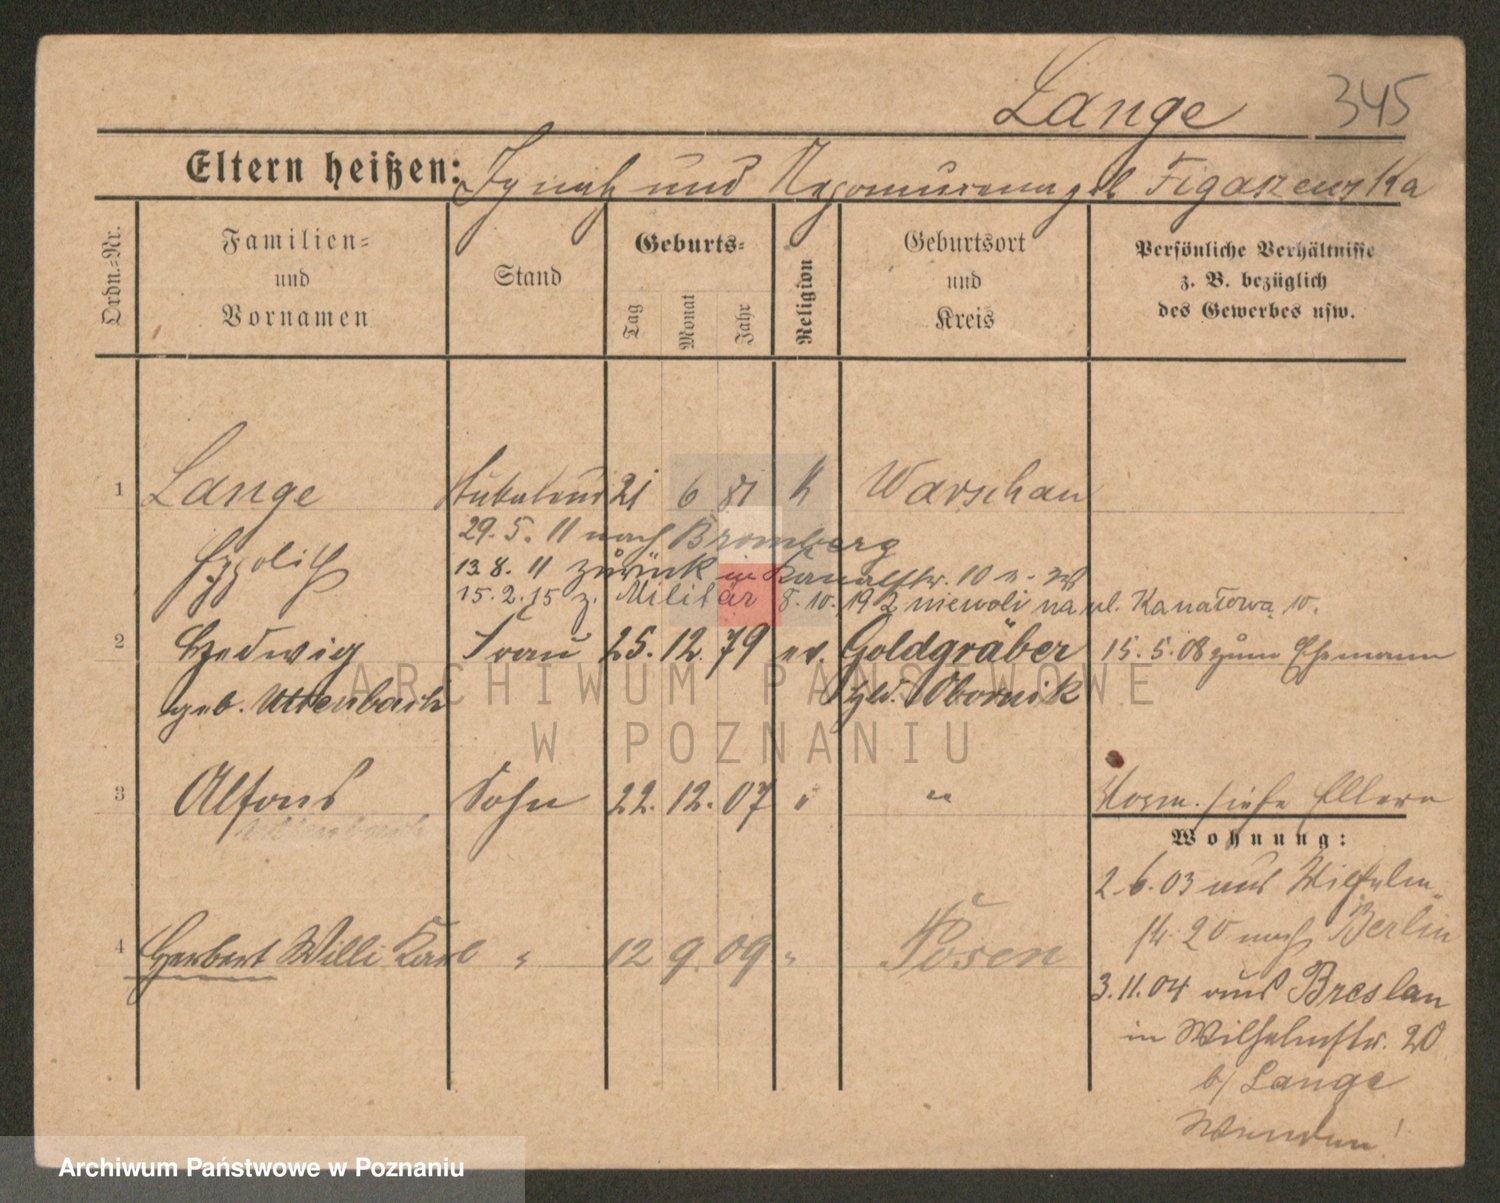 Lange 345
Eltern heißen: Ignatz und geb. Figaszewska
Ordn.-Nr.
Familien-
und
Vornamen
Stand
Geburts-
Tag
Monat
Jahr
Religion
Geburtsort
und
Kreis
Persönliche Verhältnisse
z. B. bezüglich
des Gewerbes usw.
1 Lange 21 6 81 k Warschau
29. 5. 11 nach Bromberg
Hyppolith 13. 8. 11 zurück in Kanalstr. 10
15. 2. 15 z. Militär 8. 10. 19 z niewoli na ul. Kanałową 10.
2 Hedwig Frau 25. 12. 79 ev. Goldgräber 15. 5. 08 zum Ehemann
geb. Uttenbach Obornik
3 Alfons Sohn 22. 12. 07 " " Vorm. siehe Eltern
Wohnung:
2. 6. 03 aus Wilhelm-
str. 20 nach Berlin
4 Herbert Willi Karl " 12 9. 09 " Posen
3. 11. 04 aus Breslau
in Wilhelmstr. 20
b/ Lange
Wenden!
ARCHIWUM PAŃSTWOWE
W POZNANIU
Archiwum Państwowe w Poznaniu